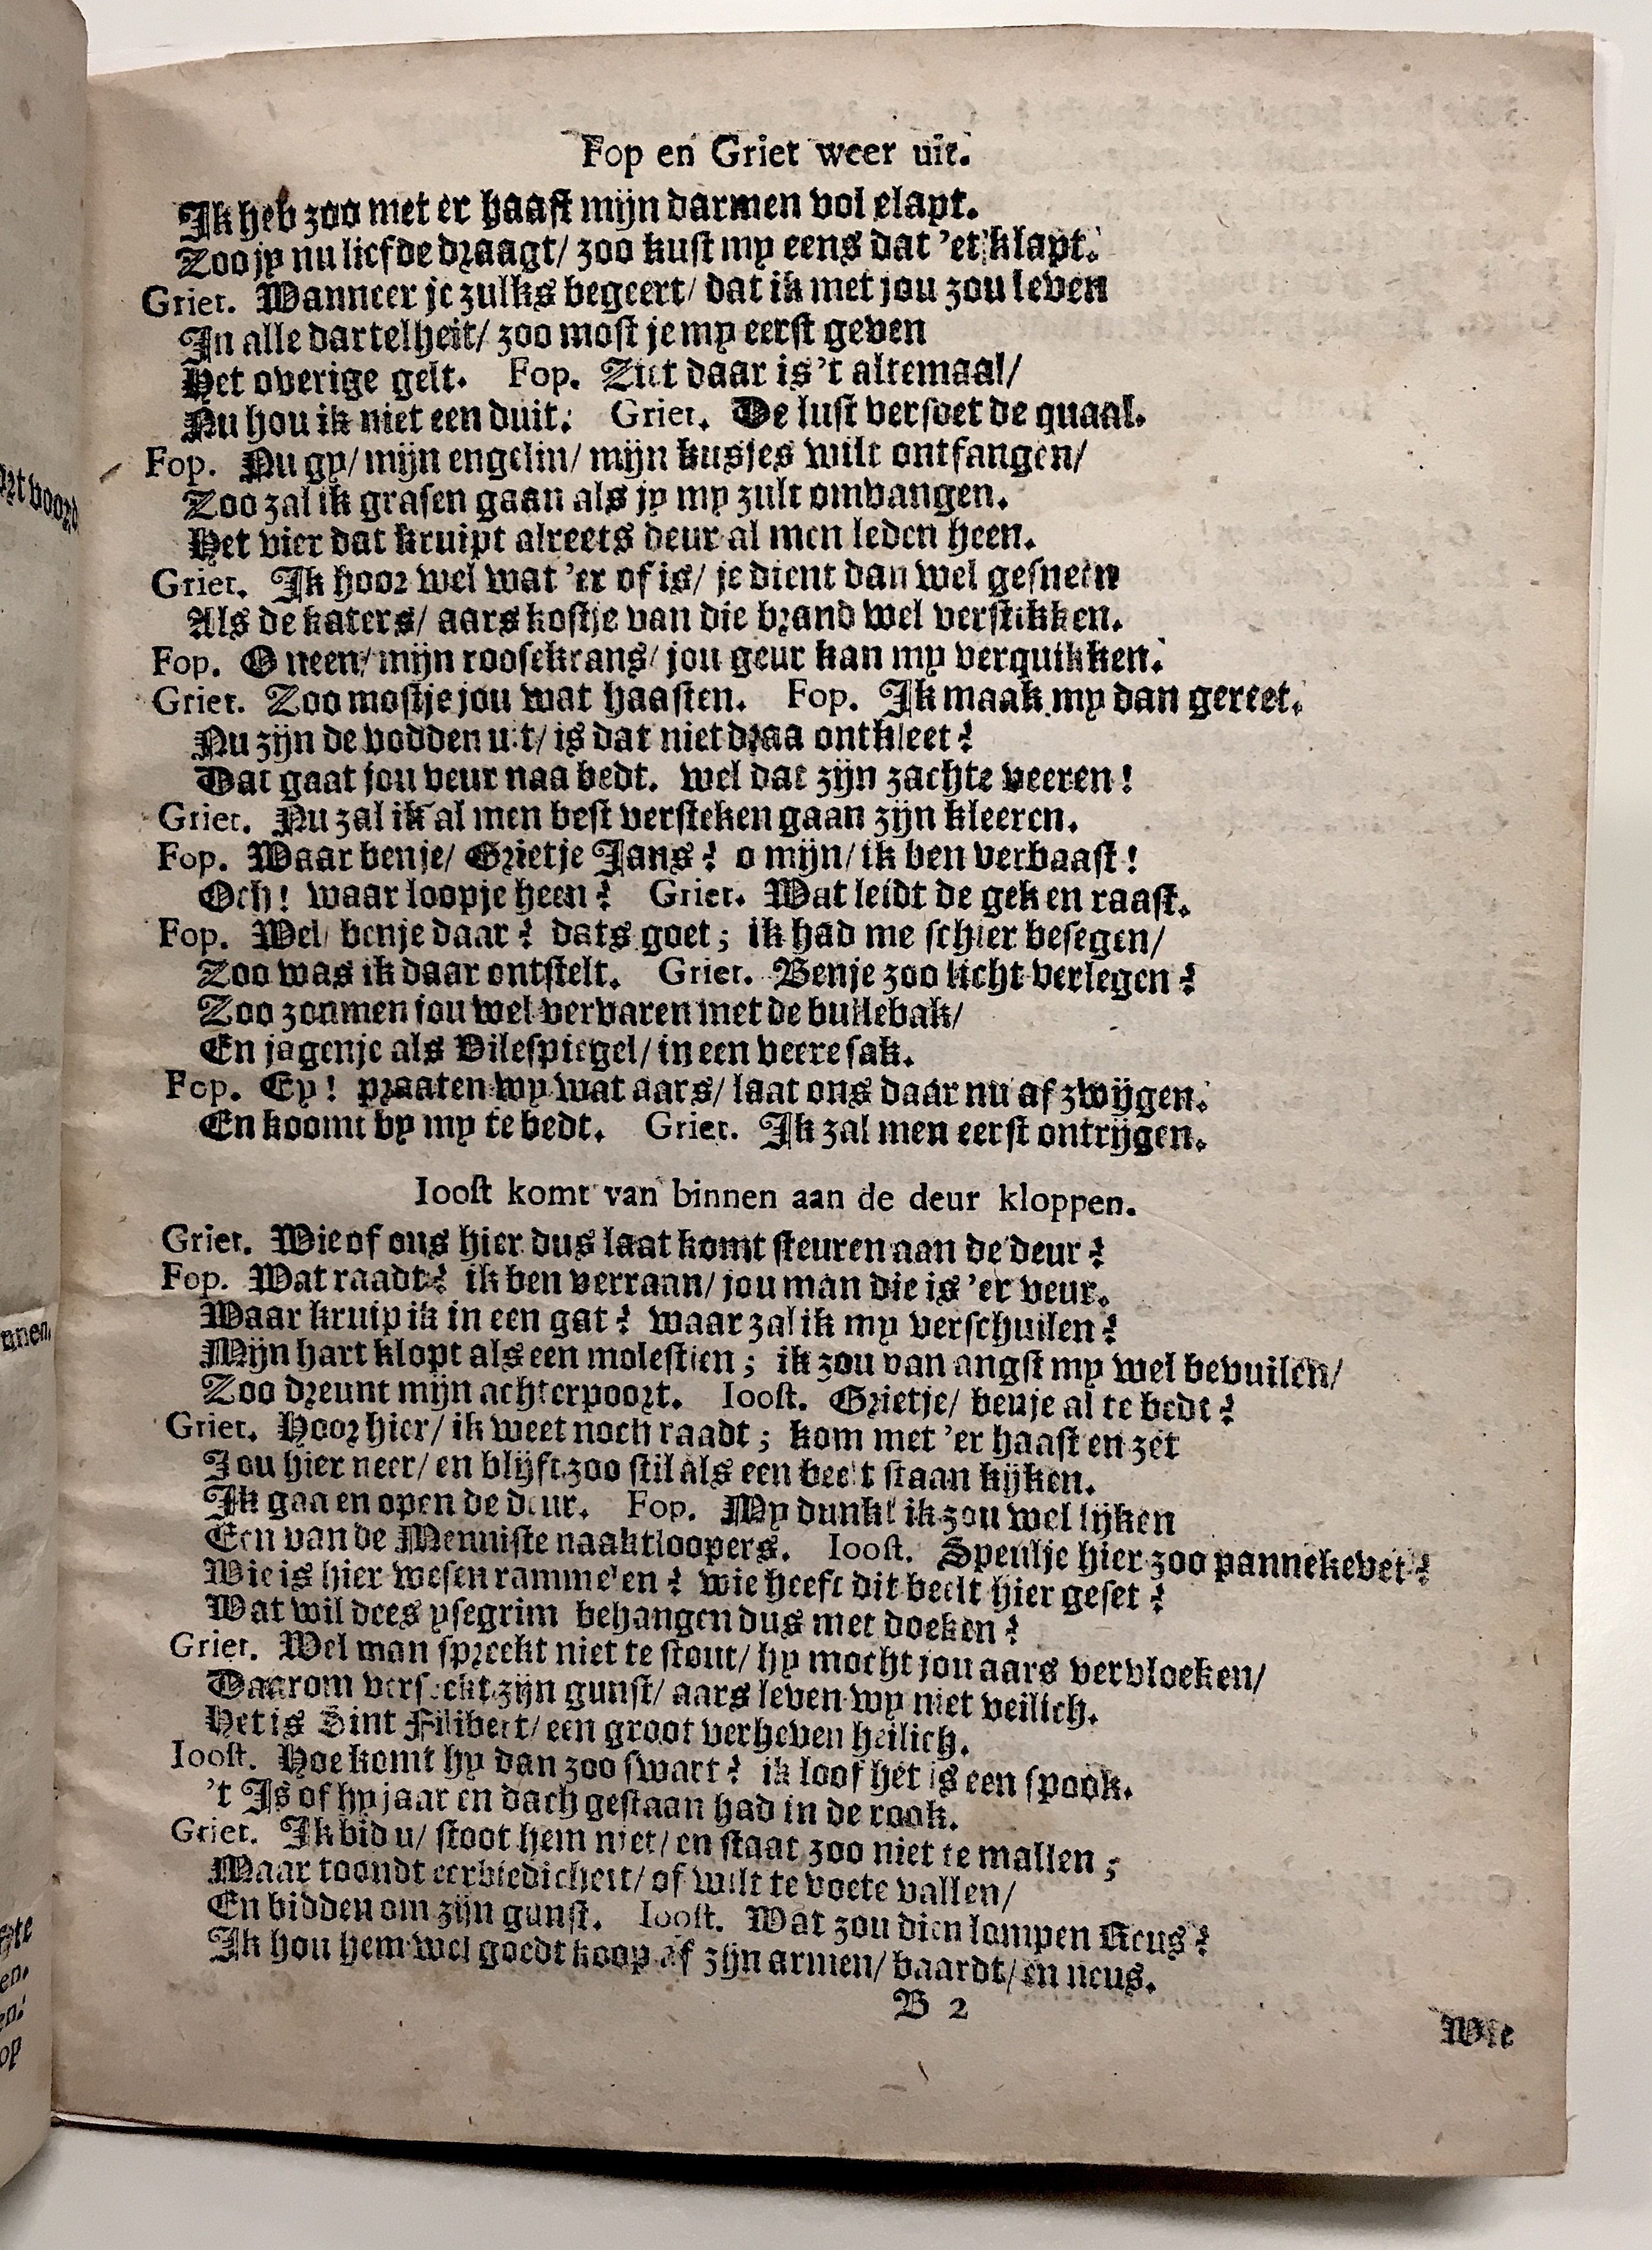 Fop en Griet weer uit.
Ik heb zoo met er haast mijn darmen vol elapt.
Zoo jy nu liefde draagt/ zoo kust my eens dat 'et klapt.
Griet. Wanneer je zulks begeert/ dat ik met jou zou leven
In alle dartelheit/ zoo most je my eerst geven
Het overige gelt. Fop. Ziet daar is 't altemaal/
Nu hou ik niet een duit: Griet. De lust versoet de quaal.
Fop. Nu gy/ mijn engelin/ mijn kusjes wilt ontfangen/
Zoo zal ik grasen gaan als jy my zult omvangen.
Het vier dat kruipt alreets deur al men leden heen.
Griet. Ik hoor wel wat 'er of is/ je dient dan wel gesneen
Als de katers/ aars kostje van die brand wel verstikken.
Fop. O neen/ mijn roosekrans/ jou geur kan my verquikken.
Griet. Zoo mostje jou wat haasten. Fop. Ik maak my dan gereet.
Nu zijn de vodden uit/ is dat niet draa ontkleet?
Dat gaat jou veur naa bedt. wel dat zijn zachte veeren!
Griet. Nu zal ik al men best versteken gaan zijn kleeren.
Fop. Waar benje/ Grietje Jans? o mijn/ ik ben verbaast!
Och! waar loopje heen? Griet. Wat leidt de gek en raast.
Fop. Wel/ benje daar? dats goet; ik had me schier besegen/
Zoo was ik daar ontstelt. Griet. Benje zoo licht verlegen?
Zoo zonmen jou wel vervaren met de bullebak/
En jagenje als Uilespiegel/ in een veere sak.
Fop. Ey! praaten wy wat aars/ laat ons daar nu af zwijgen.
En koomt by my te bedt. Griet. Ik zal men eerst ontrijgen.
Ioost komt van binnen aan de deur kloppen.
Griet. Wie of ons hier dus laat komt steuren aan de deur?
Fop. Wat raadt? ik ben verraan/ jou man die is 'er veur.
Waar kruip ik in een gat? waar zal ik my verschuilen?
Mijn hart klopt als een molestien; ik zou van angst my wel bevuilen/
Zoo dreunt mijn achterpoort. Ioost. Grietje/ benje al te bedt?
Griet. Hoor hier/ ik weet noch raadt; kom met 'er haast en zet
Jou hier neer/ en blijft zoo stil als een beelt staan kijken.
Ik gaa en open de deur. Fop. My dunkt ik zou wel lijken
Een van de Menniste naaktloopers. Ioost. Speulje hier zoo pannekevet?
Wie is hier wesen rammelen? wie heeft dit beelt hier geset?
Wat wil dees ysegrim behangen dus met doeken?
Griet. Wel man spreekt niet te stout/ hy mocht jou aars vervloeken/
Daarom verseekt zijn gunst/ aars leven wy niet veilich.
Het is Sint Filibert/ een groot verheven heilich.
Ioost. Hoe komt hy dan zoo swart? ik loof het is een spook.
't Is of hy jaar en dach gestaan had in de rook.
Griet. Ik bid u/ stoot hem niet/ en staat zoo niet te mallen;
Maar toondt eerbiedicheit/ of wilt te voete vallen/
En bidden om zijn gunst. Ioost. Wat zou dien lompen Reus?
Ik hou hem wel goedt koop af zijn armen/ baardt/ en neus.
B 2
Wie